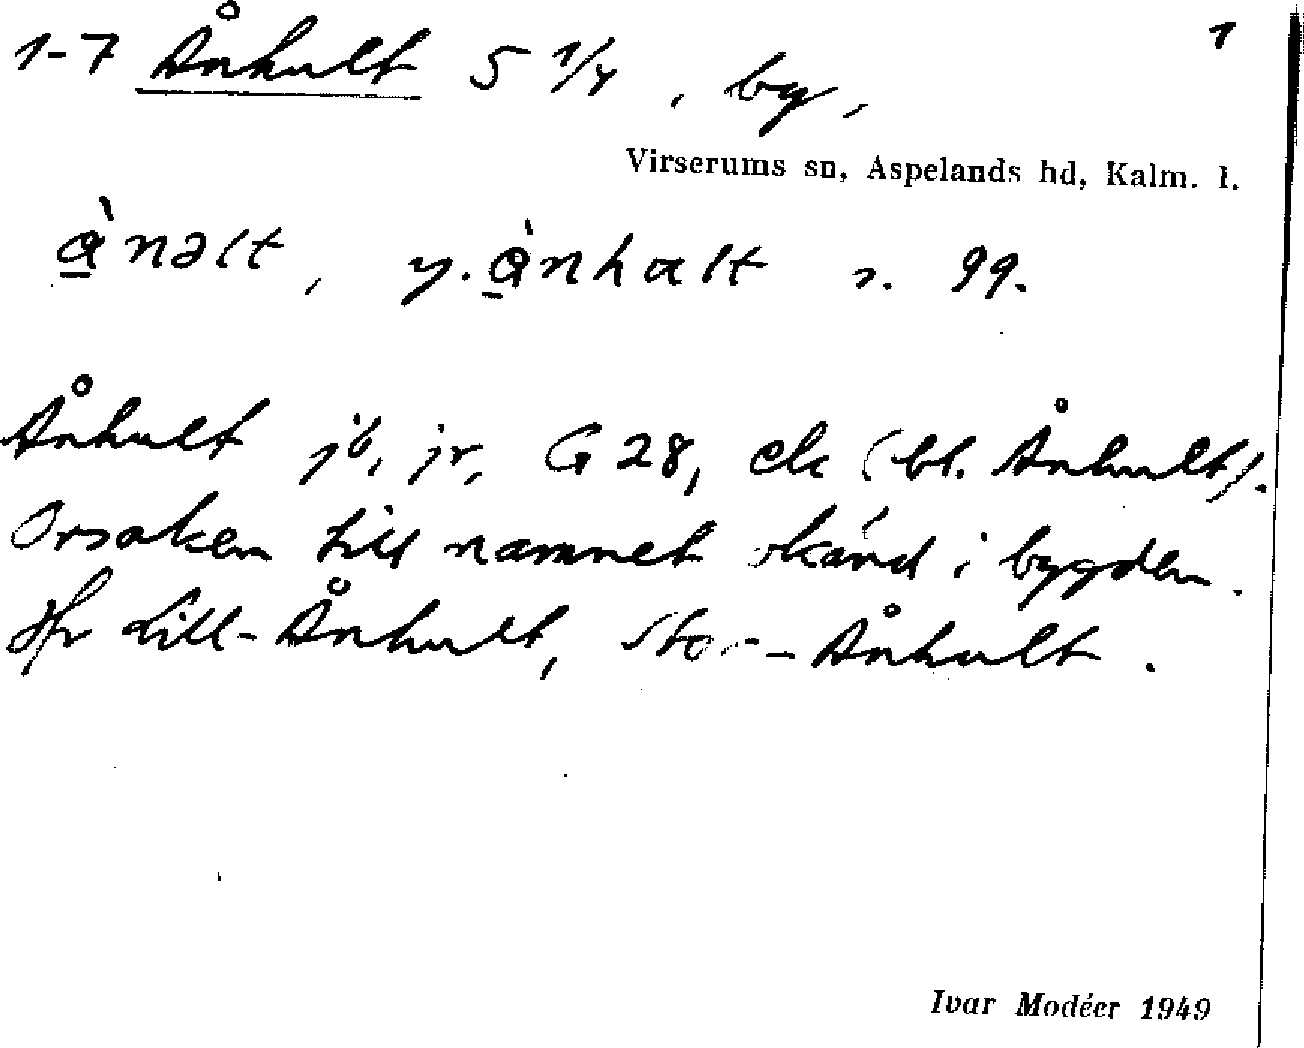 1-7 Ånhult 5 1/4, by, 1
Virserums sn, Aspelands hd, Kalm. l.
ànəlt, y. ànhalt s. 99.
Ånhult jb, jr, G 28, ek (bl. Ånhult).
Orsaken till namnet okänd i bygden.
Jfr Lill-Ånhult, Stor-Ånhult.
Ivar Modéer 1949